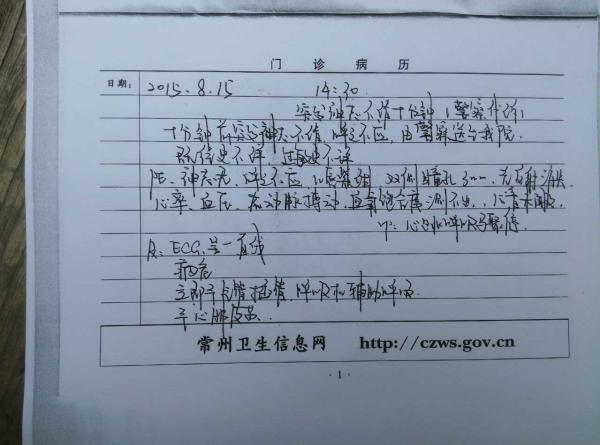 门诊病历
日期:
2015.8.15 14:30
突发神志不清十分钟(警察代诉)
十分钟前突发神志不清,呼之不应,由警察送至我院.
既往史不详 过敏史不详
PE:神志无,呼之不应,口唇紫绀,双侧瞳孔3mm,光反射消失
心率、血压、大动脉搏动、血氧饱和度测不出,心音未闻及,
心跳呼吸骤停.
R: ECG呈一直线
病危
立即予气管插管,呼吸机辅助呼吸
予心肺复苏.
常州卫生信息网 http://czws.gov.cn
·1·